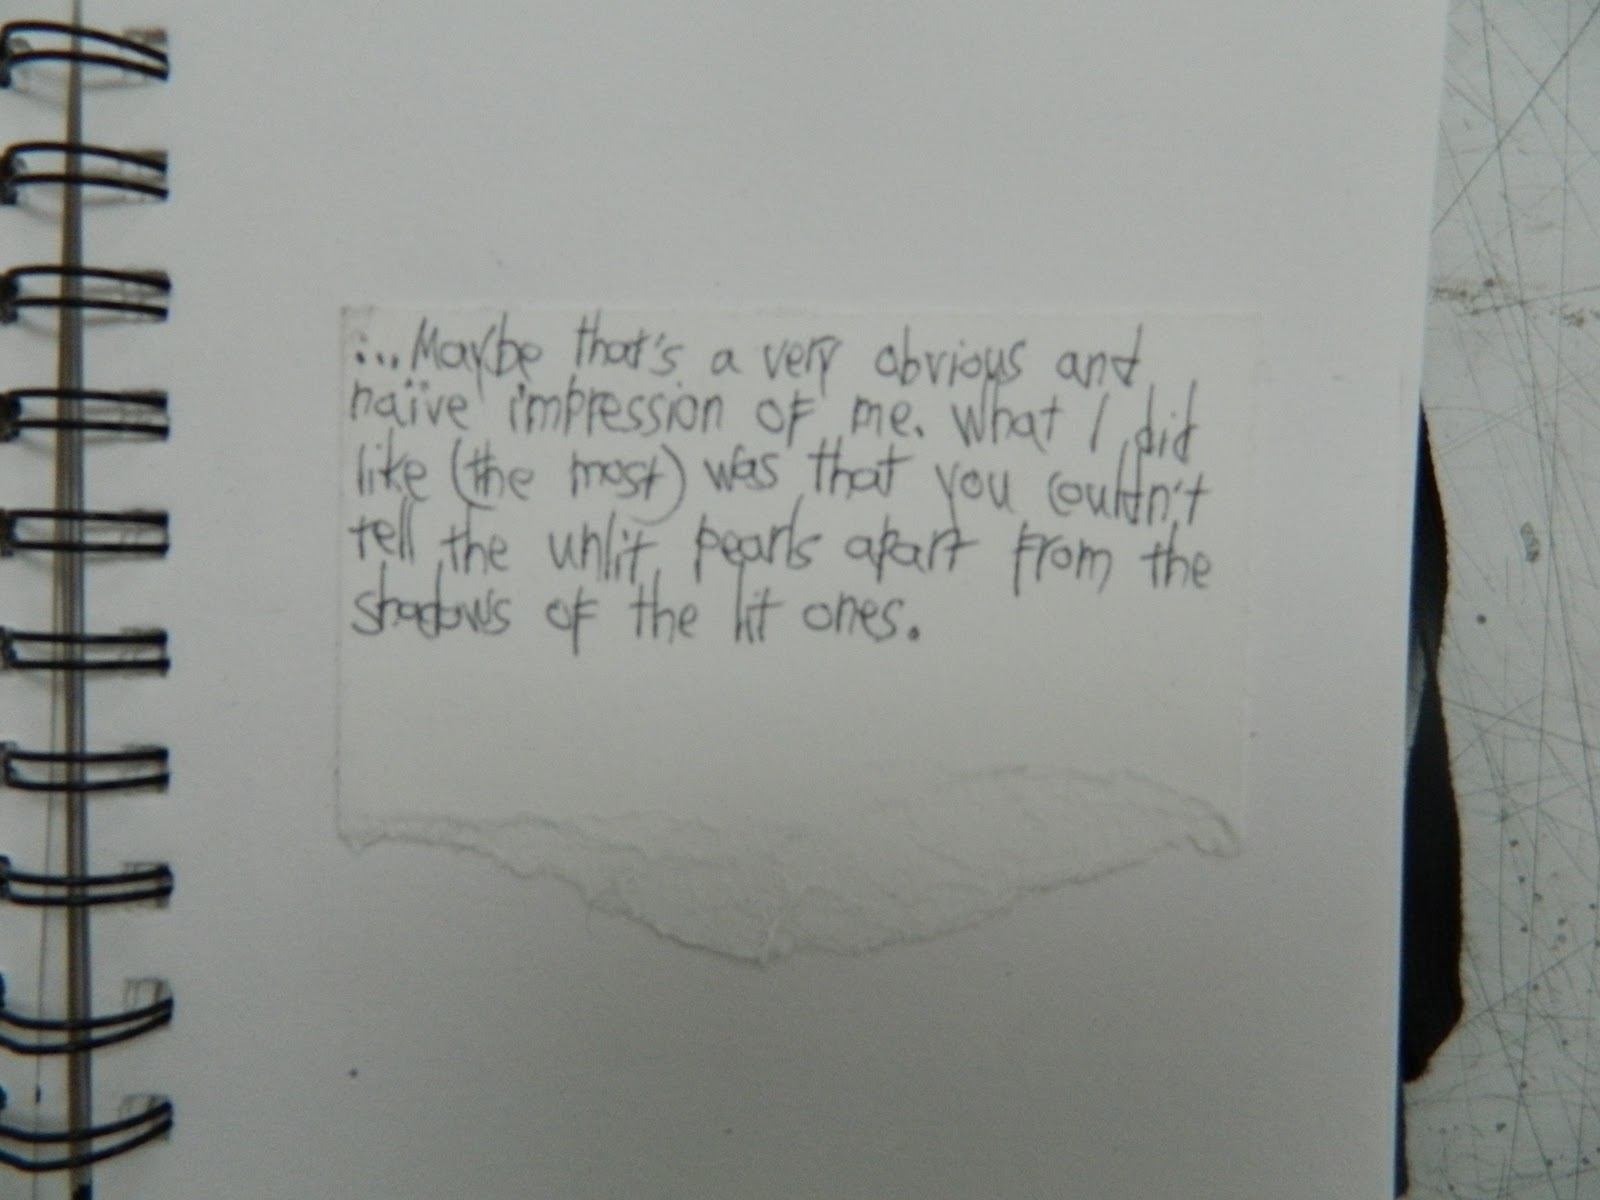 ...Maybe that's a very obvious and
naïve impression of me. What I did
like (the most) was that you couldn't
tell the unlit pearls apart from the
shadows of the lit ones.